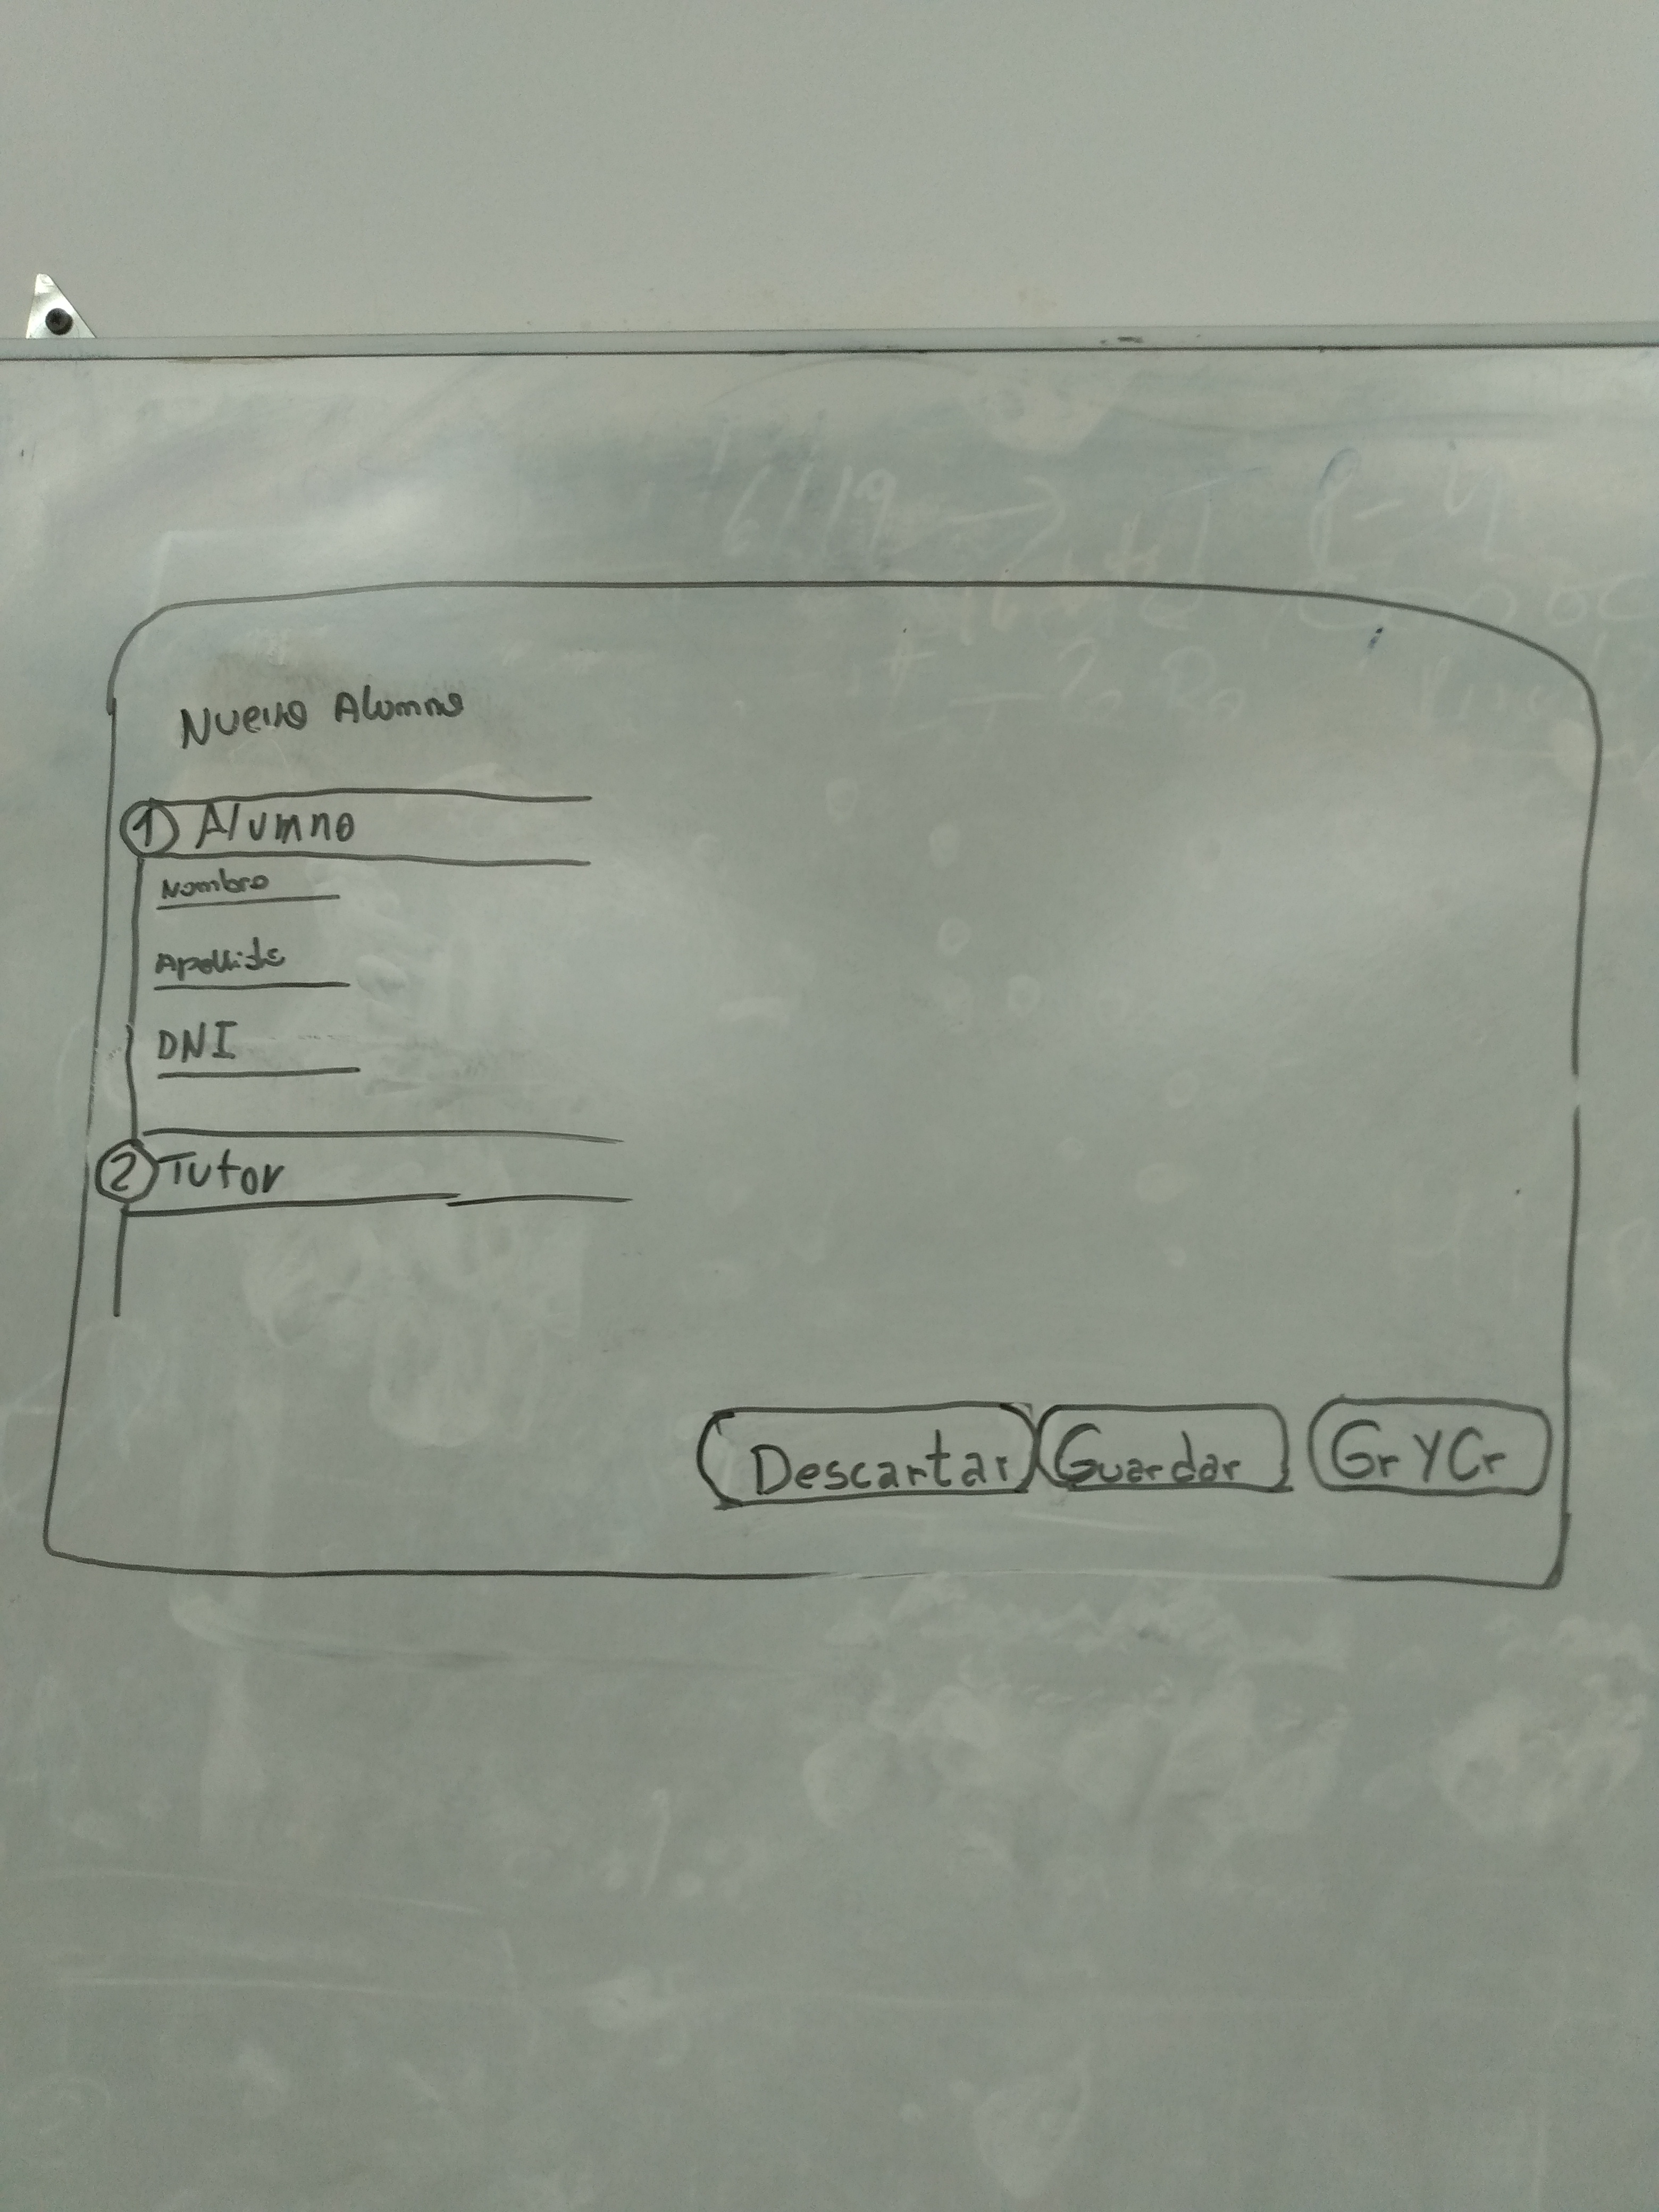 Nuevo Alumno
1 Alumno
Nombre
Apellido
DNI
2 Tutor
Descartar Guardar Gr Y Cr